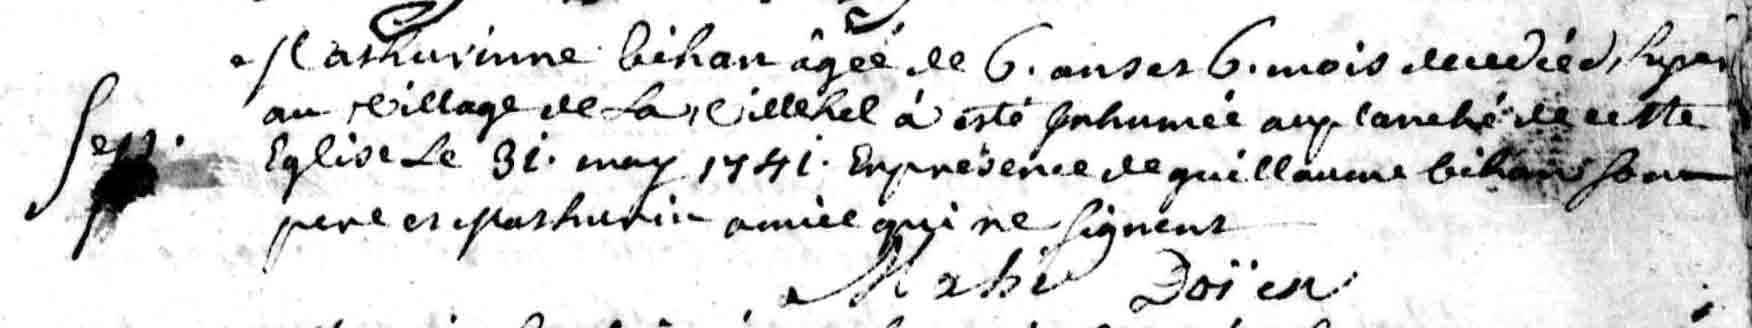 Mathurinne bihan âgée de 6. ans et 6. mois decedéé hyer
au village de La villehel á esté Inhumée au planché de cette
Sep. Eglise Le 31. may 1741. En présence de guillaume bihan son
pere et Mathurin amice qui ne signent
Mahé Doïen